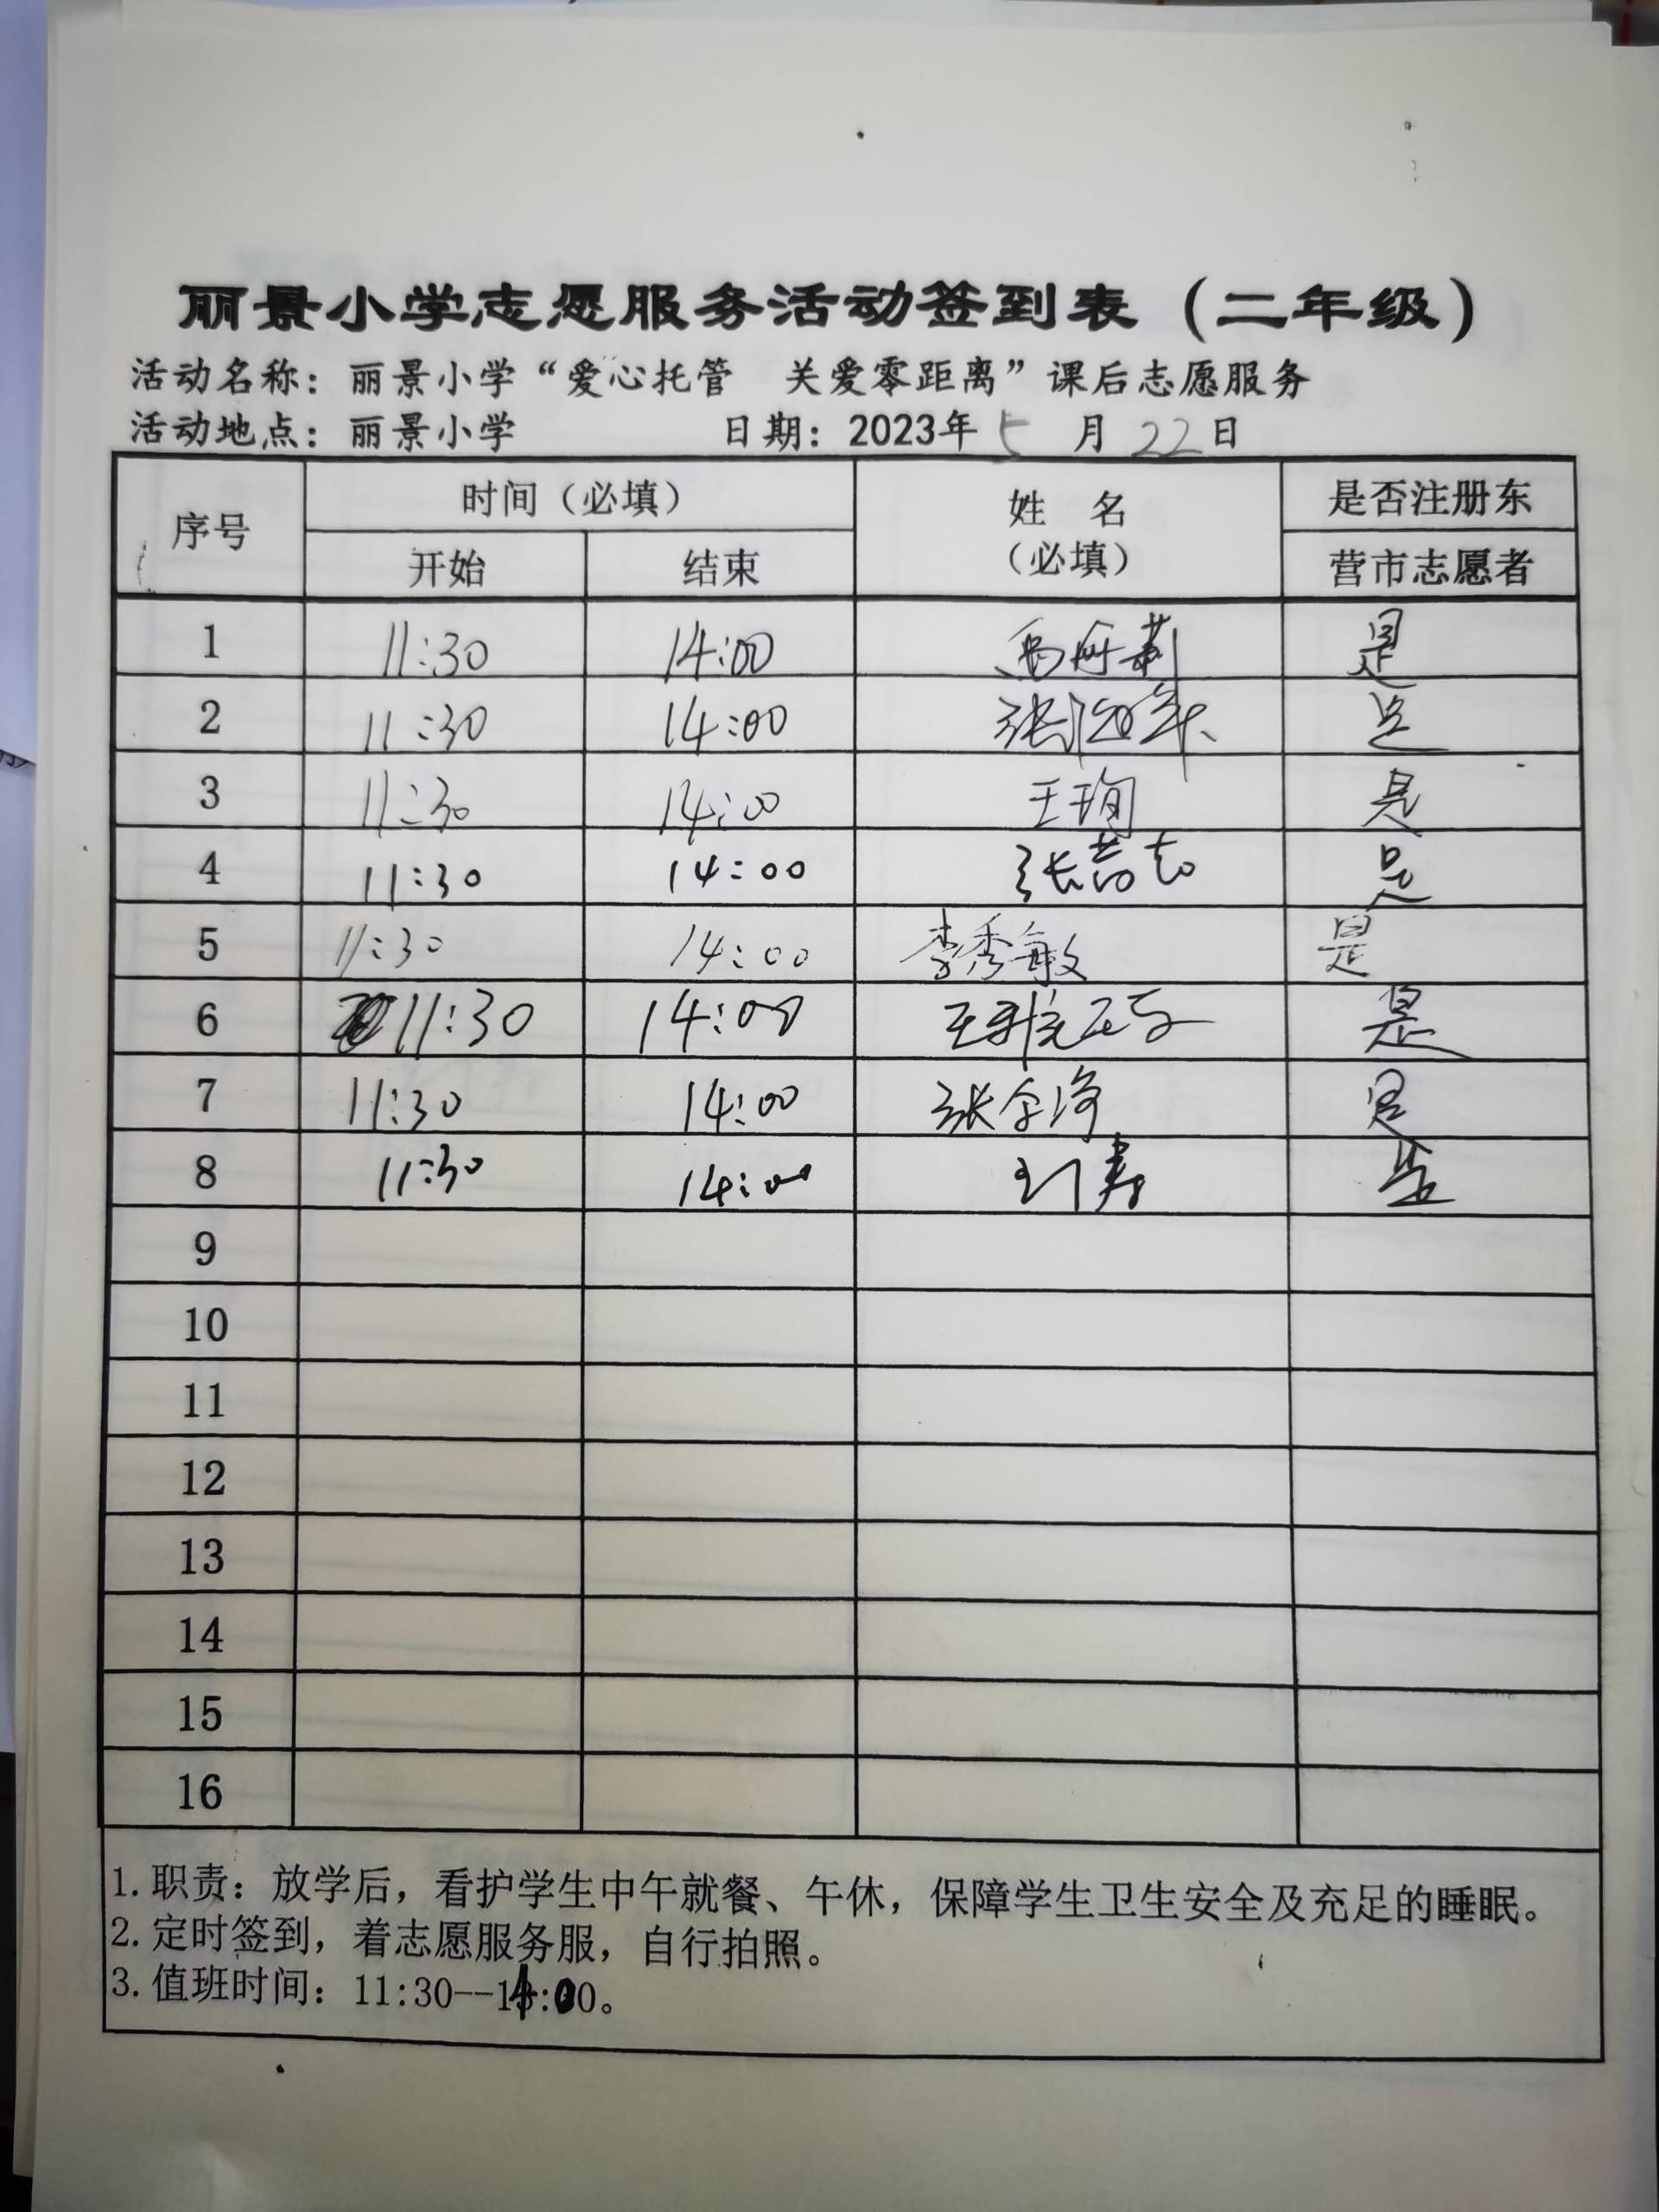 丽景小学志愿服务活动签到表（二年级）
活动名称：丽景小学“爱心托管 关爱零距离”课后志愿服务
活动地点：丽景小学 日期：2023年 5 月 22 日
序号 时间（必填） 姓 名 （必填） 是否注册东
开始 结束 营市志愿者
1 11:30 14:00 是
2 11:30 14:00 张 是
3 11:30 14:00 王珣 是
4 11:30 14:00 张 是
5 11:30 14:00 李秀敏 是
6 11:30 14:00 王 是
7 11:30 14:00 张 是
8 11:30 14:00 是
9
10
11
12
13
14
15
16
1.职责：放学后，看护学生中午就餐、午休，保障学生卫生安全及充足的睡眠。
2.定时签到，着志愿服务服，自行拍照。
3.值班时间：11:30--14:00。